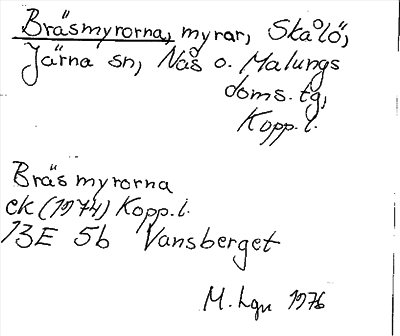 Bräsmyrorna, myrar, Skålö,
Järna sn, Nås o. Malungs
doms. tg,
Kopp. l.
Bräsmyrorna
ek (1974) Kopp. l.
13E 5b Vansberget
M. Lgn 1976